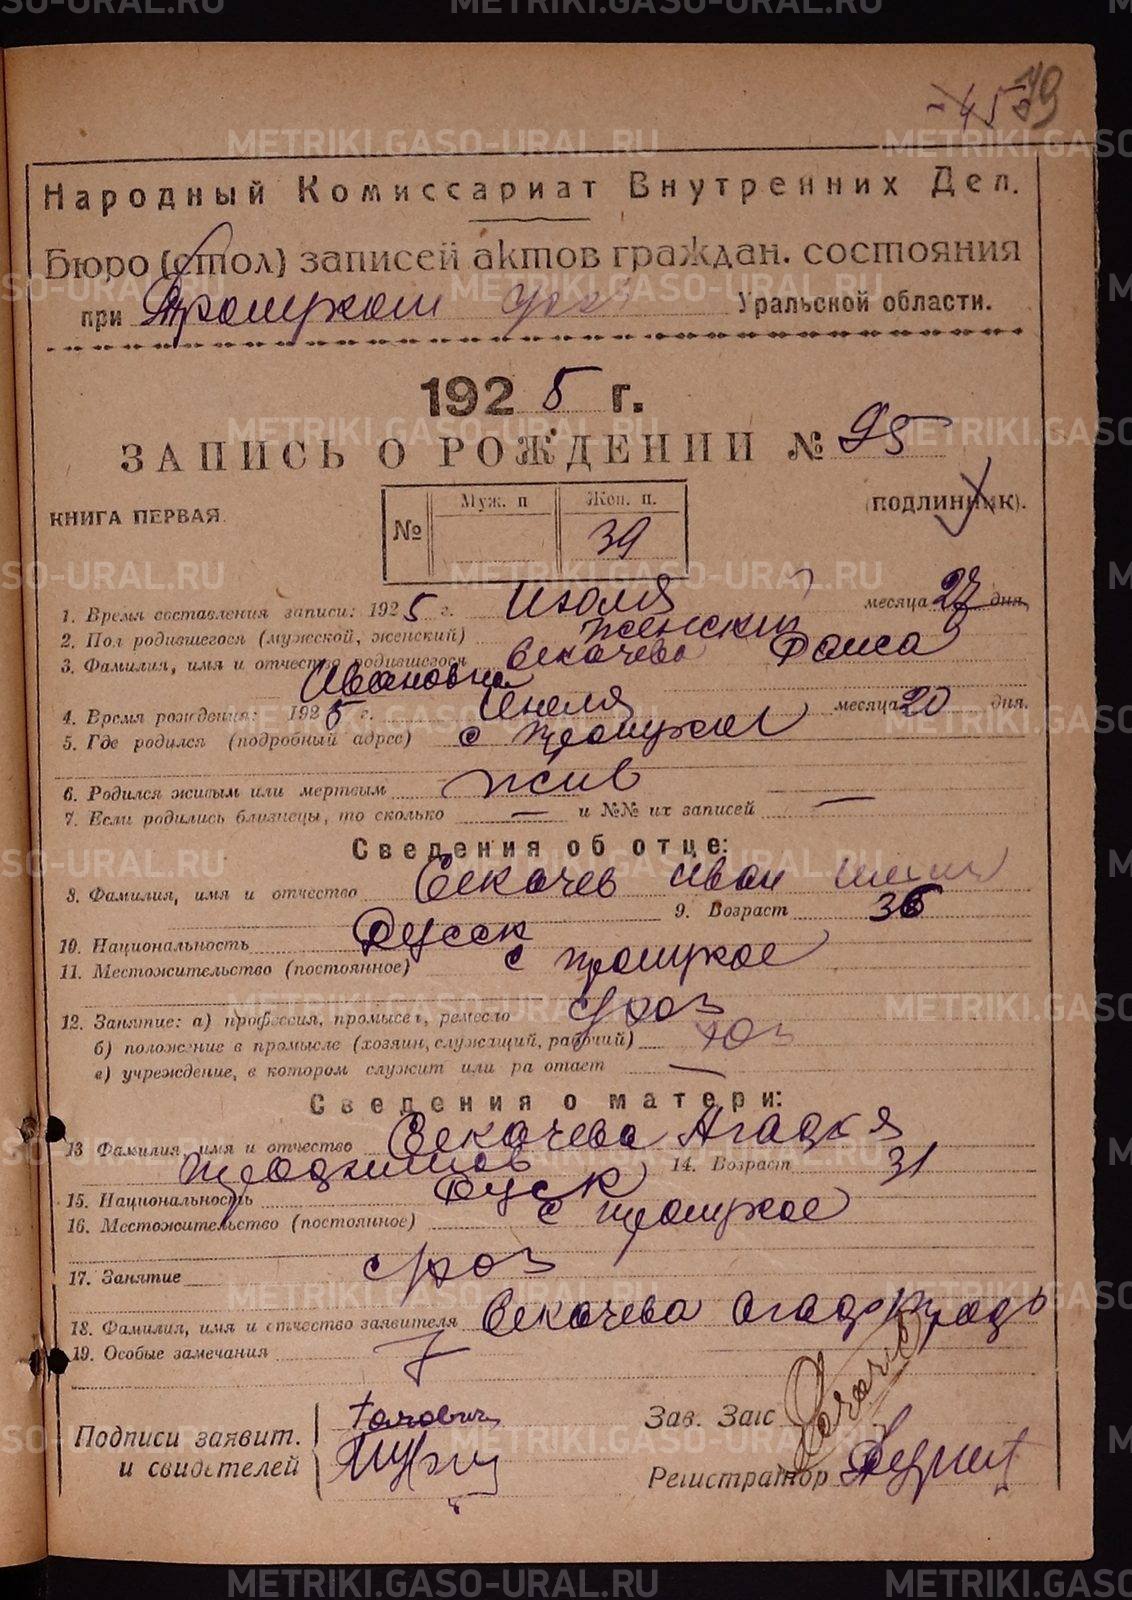 79
45
Народный Комиссариат Внутренних Дел.
Бюро (стол) записей актов граждан. состояния
при Троицком Уральской области.
1925 г.
ЗАПИСЬ О РОЖДЕНИИ № 95
КНИГА ПЕРВАЯ. (ПОДЛИННИК).
№ Муж. п Жен. п.
39
1. Время составления записи: 1925 г. Июля месяца 27 дня,
2. Пол родившегося (мужской, женский) женский
3. Фамилия, имя и отчество родившегося Секачева Фаиса
Ивановна
4. Время рождения: 1925 г. Июля месяца 20 дня.
5. Где родился (подробный адрес) с Троицкое
6. Родился живым или мертвым жив
7. Если родились близнецы, то сколько — и №№ их записей —
Сведения об отце:
8. Фамилия, имя и отчество Секачев Иван
9. Возраст 36
10. Национальность Русск
11. Местожительство (постоянное) с Троицкое
12. Занятие: а) профессия, промысел, ремесло
б) положение в промысле (хозяин, служащий, рабочий) хоз
в) учреждение, в котором служит или работает —
Сведения о матери:
13 Фамилия, имя и отчество Секачева
14. Возраст 31
15. Национальность Руск
16. Местожительство (постоянное) с Троицкое
17. Занятие
18. Фамилия, имя и отчество заявителя Секачева
19. Особые замечания
Подписи заявит. и свидетелей
Зав. Загс
Регистратор
METRIKI.GASO-URAL.RU